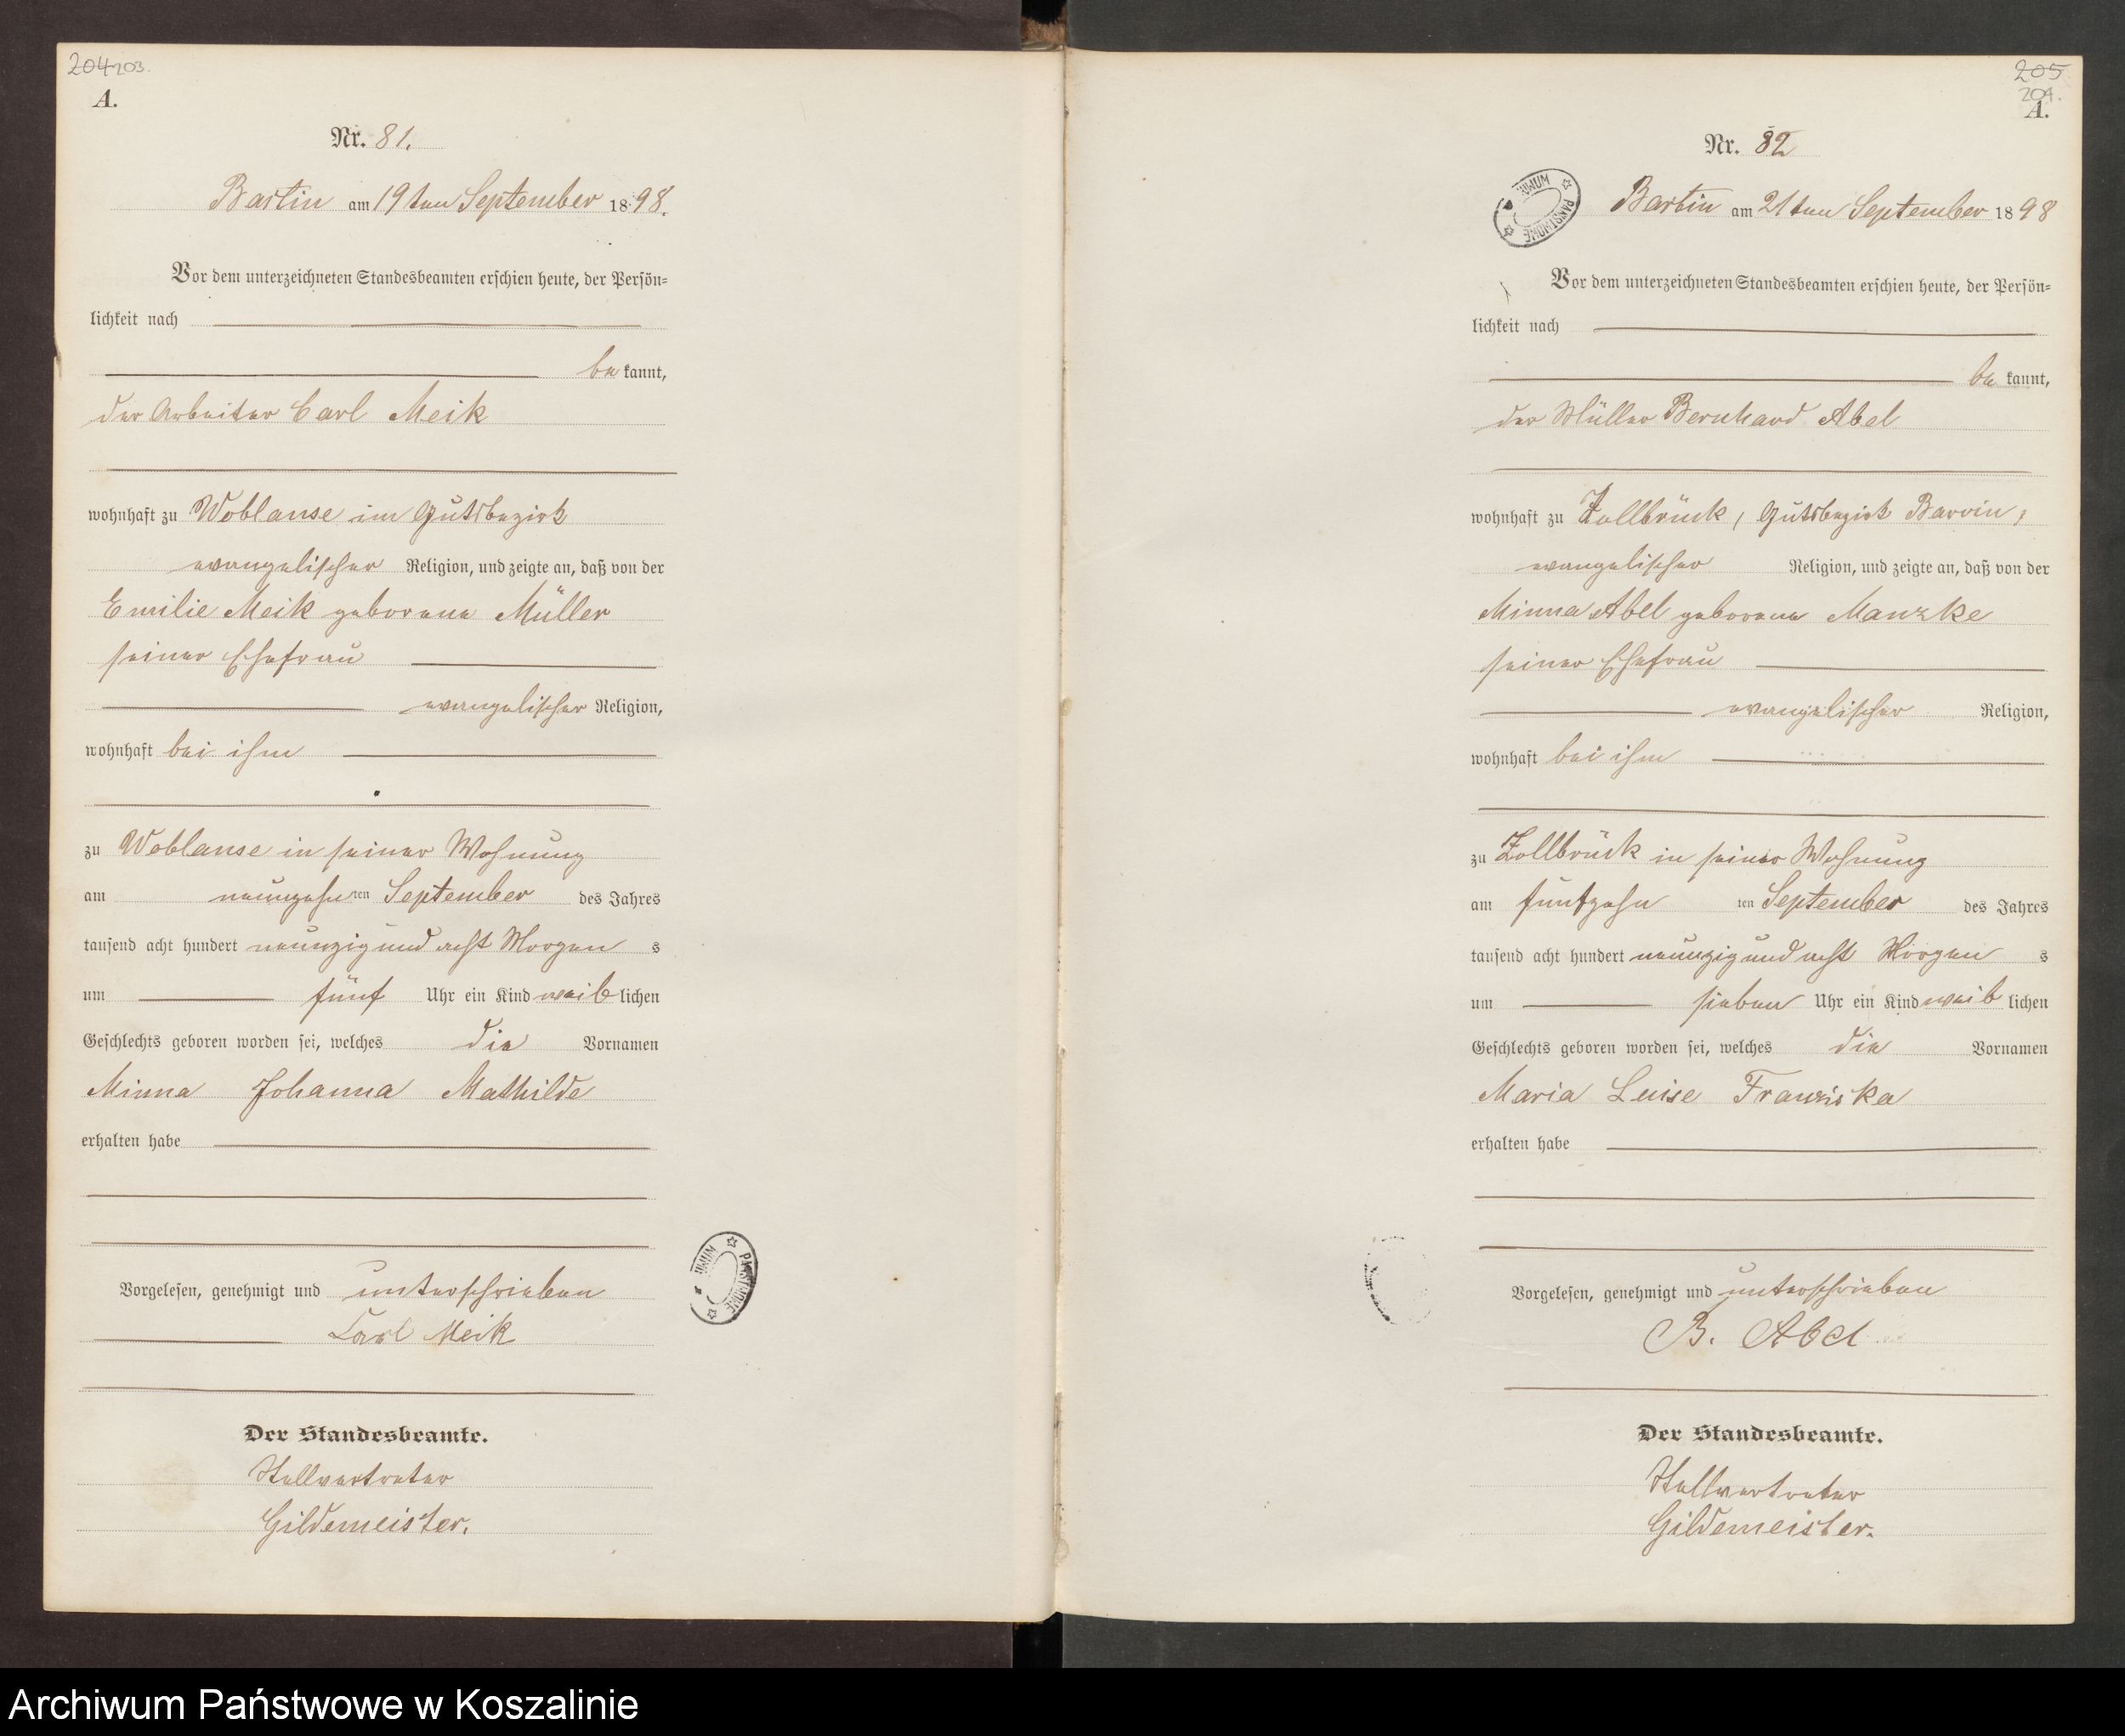 204 203.
A.
Nr. 81.
Bartin am 19ten September 1898.
Vor dem unterzeichneten Standesbeamten erschien heute, der Persön=
lichkeit nach
be kannt,
der Arbeiter Carl Meik
wohnhaft zu Woblanse im Gutsbezirk
evangelischer Religion, und zeigte an, daß von der
Emilie Meik geborene Müller
seiner Ehefrau
evangelischer Religion,
wohnhaft bei ihm
zu Woblanse in seiner Wohnung
am neunzehnten September des Jahres
tausend acht hundert neunzig und acht Morgens
um fünf Uhr ein Kind weiblichen
Geschlechts geboren worden sei, welches die Vornamen
Minna Johanna Mathilde
erhalten habe
Vorgelesen, genehmigt und unterschrieben
Carl Meik
Der Standesbeamte.
Stellvertreter
Gildemeister.
PAŃSTWOWE
205
204.
A.
Nr. 82
PAŃSTWOWE
Bartin am 21ten September 1898
Vor dem unterzeichneten Standesbeamten erschien heute, der Persön=
lichkeit nach
be kannt,
der Müller Bernhard Abel
wohnhaft zu Zollbrück, Gutsbezirk Barvin,
evangelischer Religion, und zeigte an, daß von der
Minna Abel geborene Manzke
seiner Ehefrau
evangelischer Religion,
wohnhaft bei ihm
zu Zollbrück in seiner Wohnung
am fünfzehnten September des Jahres
tausend acht hundert neunzig und acht Morgens
um sieben Uhr ein Kind weiblichen
Geschlechts geboren worden sei, welches die Vornamen
Maria Luise Franziska
erhalten habe
Vorgelesen, genehmigt und unterschrieben
B. Abel
Der Standesbeamte.
Stellvertreter
Gildemeister.
Archiwum Państwowe w Koszalinie